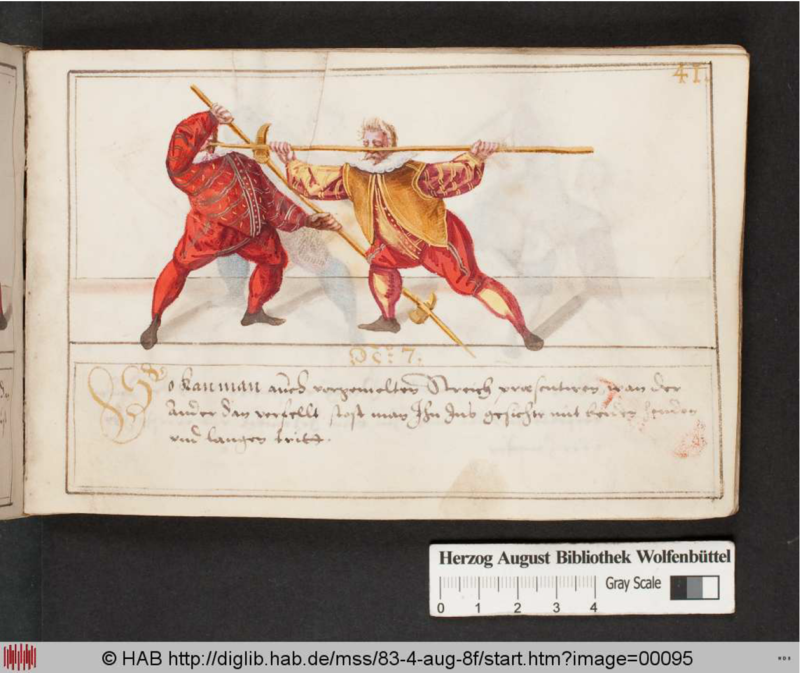 41.
No: 7.
So kan man auch vorgemelten Streich præsentiren, wan der
Ander dan verfellt stost man Ihn Ins gesicht mit beiden henden
vnd langen tritt.
Herzog August Bibliothek Wolfenbüttel
Gray Scale
0 1 2 3 4
© HAB http://diglib.hab.de/mss/83-4-aug-8f/start.htm?image=00095